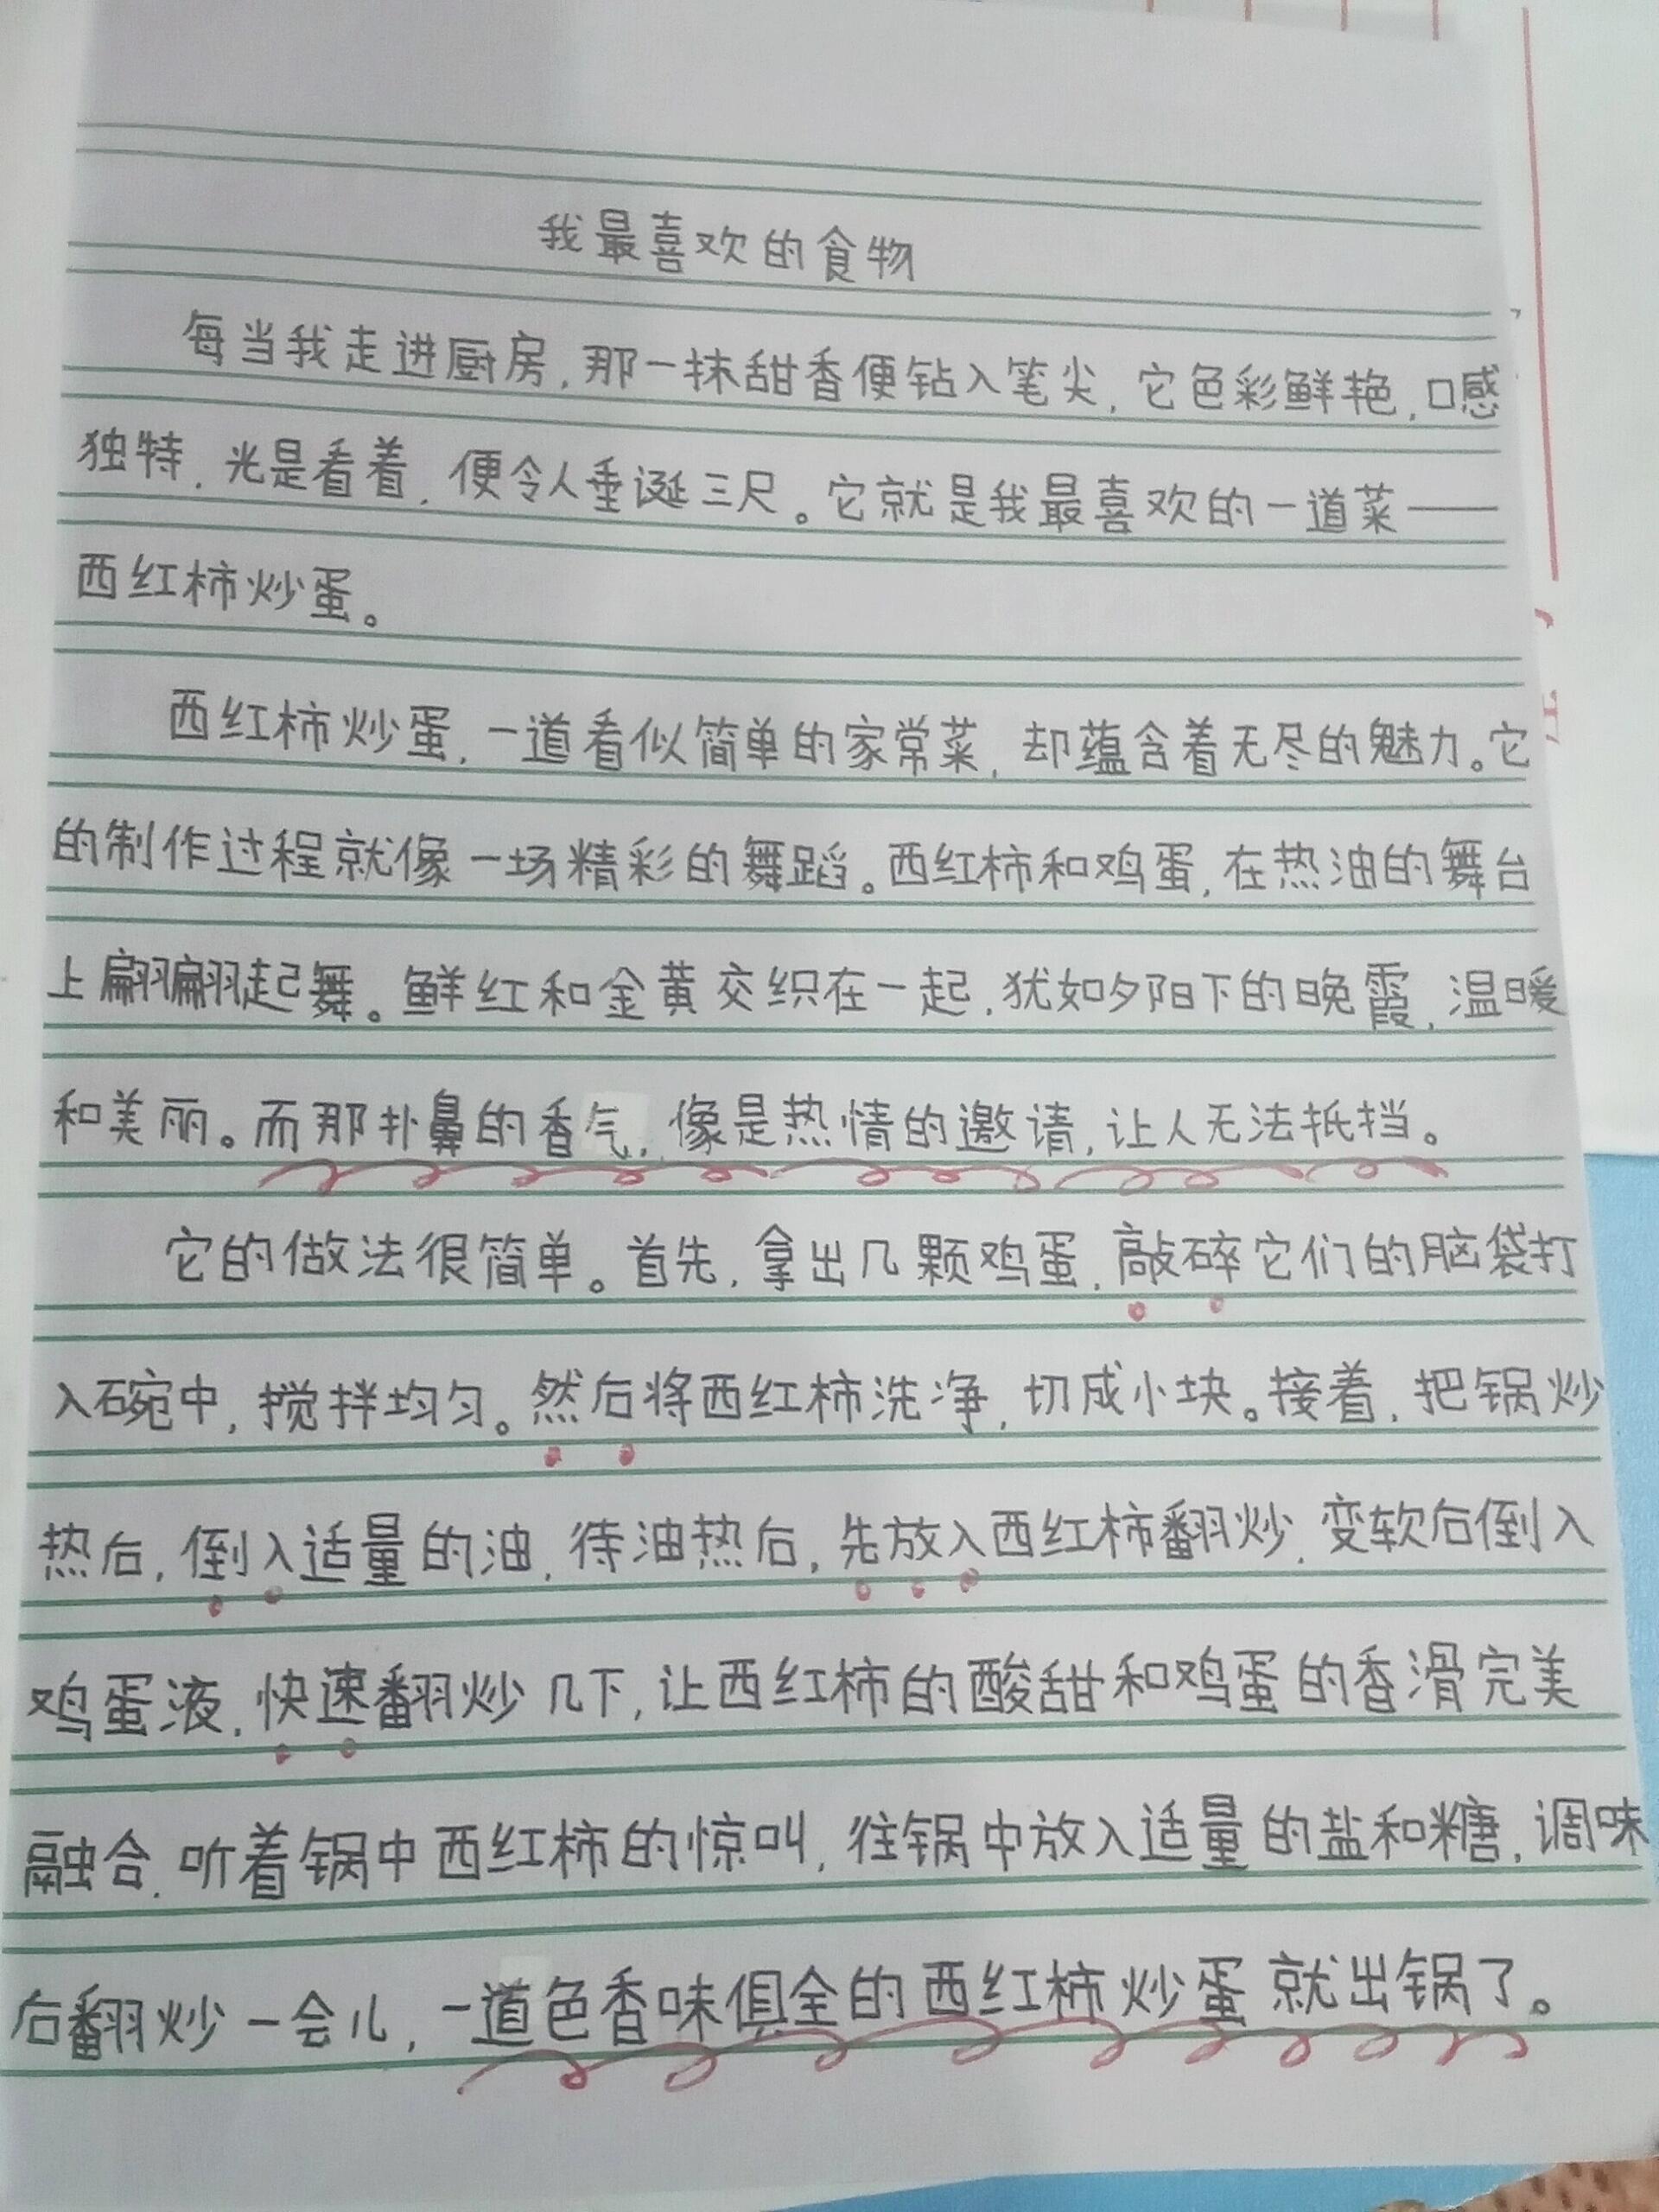 我最喜欢的食物
每当我走进厨房,那一抹甜香便钻入笔尖,它色彩鲜艳,口感
独特,光是看着,便令人垂涎三尺。它就是我最喜欢的一道菜——
西红柿炒蛋。
西红柿炒蛋,一道看似简单的家常菜,却蕴含着无尽的魅力。它
的制作过程就像一场精彩的舞蹈。西红柿和鸡蛋,在热油的舞台
上翩翩起舞。鲜红和金黄交织在一起,犹如夕阳下的晚霞,温暖
和美丽。而那扑鼻的香气,像是热情的邀请,让人无法抵挡。
它的做法很简单。首先,拿出几颗鸡蛋,敲碎它们的脑袋打
入碗中,搅拌均匀。然后将西红柿洗净,切成小块。接着,把锅炒
热后,倒入适量的油,待油热后,先放入西红柿翻炒,变软后倒入
鸡蛋液,快速翻炒几下,让西红柿的酸甜和鸡蛋的香滑完美
融合,听着锅中西红柿的惊叫,往锅中放入适量的盐和糖,调味
后翻炒一会儿,一道色香味俱全的西红柿炒蛋就出锅了。